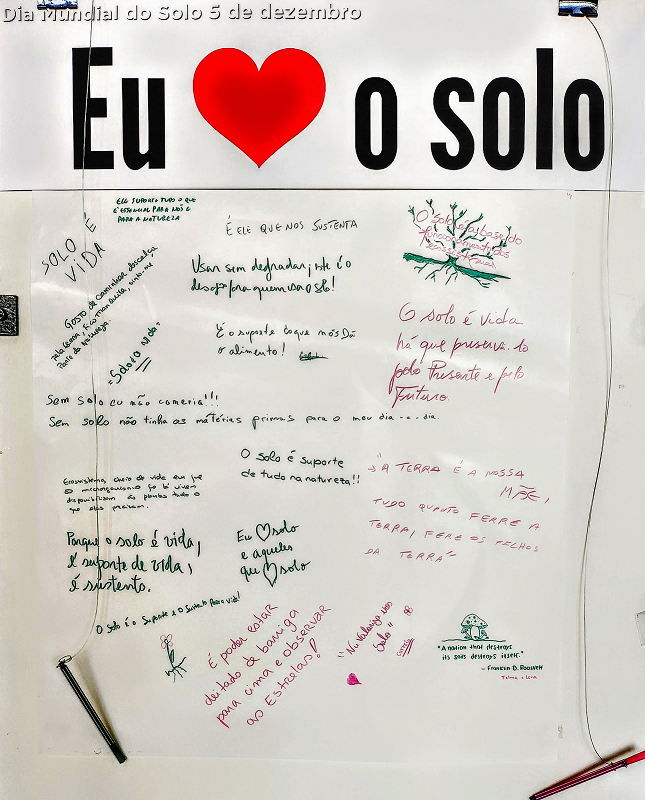 Dia Mundial do Solo 5 de dezembro
Eu o solo
ELE SUPORTA TUDO O QUE
É ESSENCIAL PARA NÓS E
PARA A NATUREZA
SOLO É
VIDA
É ELE QUE NOS SUSTENTA
O solo é a base do
funcionamento dos
ecossistemas
Gosto de caminhar descalça
pela
Parte da Natureza.
Usar sem degradar, este é o
desafio para quem usa o solo!
"Solo é vida"
É o suporte do que nós Dá
o alimento!
O solo é vida
há que preservá-lo
pelo Presente e pelo
Futuro.
Sem solo eu não comeria!!!
Sem solo não tinha as matérias primas para o meu dia-a-dia.
O solo é suporte
de tudo na natureza!!
"A TERRA É A NOSSA
MÃE,
TUDO QUANTO FERRE A
TERRA, FERE OS FILHOS
DA TERRA"
Ecossistema, cheio de vida em que
o microrganismo foi bi vivem
disponibilizam às plantas tudo o
que elas precisam.
Porque o solo é vida,
é suporte de vida,
é sustento.
Eu solo
e aqueles
que solo
O solo é o suporte e o sustento para a vida!
É poder estar
deitado de barriga
para cima e observar
as Estrelas!
"Nu Valorizo um
Solo"
"A nation that destroys
its soils destroys itself."
- Franklin D. Roosvelt
Telma e Lena